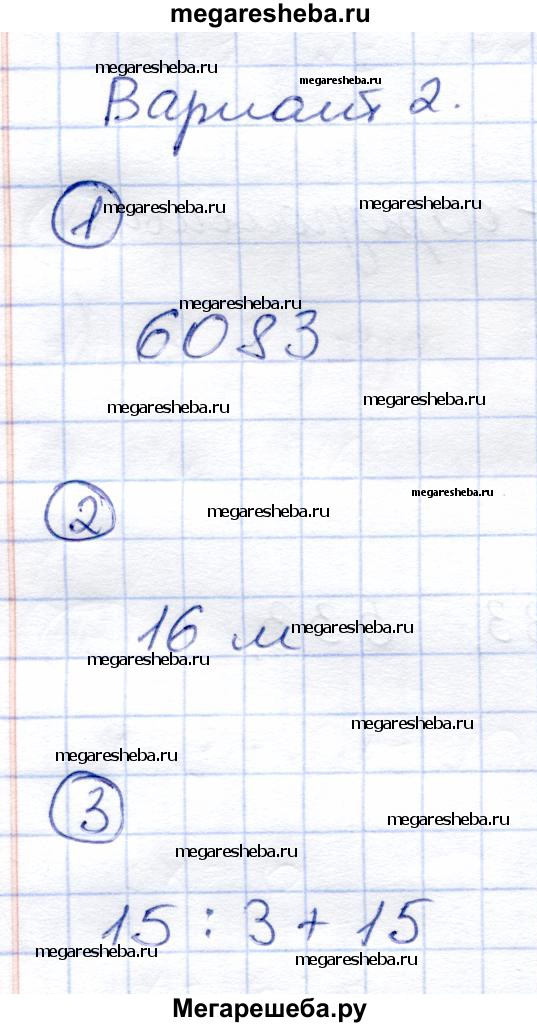 megaresheba.ru
megaresheba.ru
megaresheba.ru
Вариант 2.
1
megaresheba.ru
megaresheba.ru
megaresheba.ru
6083
megaresheba.ru
megaresheba.ru
2
megaresheba.ru
megaresheba.ru
16 м
megaresheba.ru
megaresheba.ru
megaresheba.ru
megaresheba.ru
3
megaresheba.ru
megaresheba.ru
15 : 3 + 15
megaresheba.ru
megaresheba.ru
Мегарешеба.ру